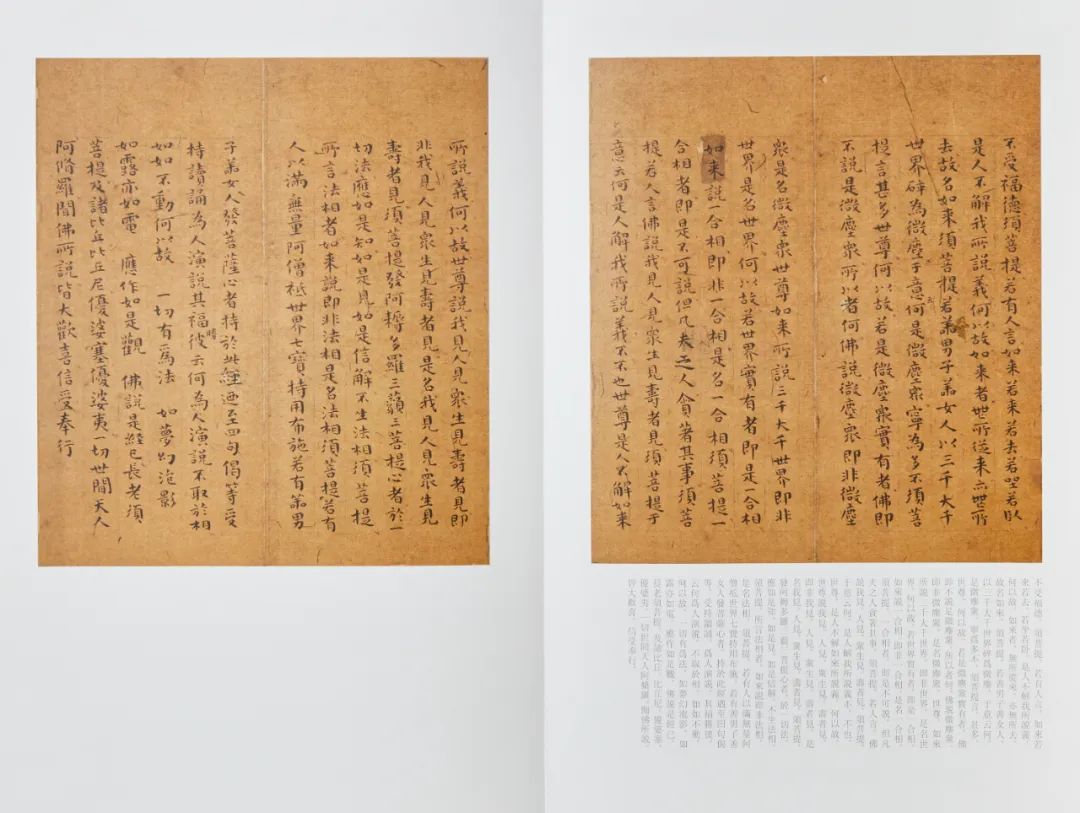 不受福德須菩提若有人言如来若来若去若坐若臥
是人不解我所說義何以故如来者无所從来亦无所
去故名如来須菩提若善男子善女人以三千大千
世界碎為微塵於意云何是微塵眾寧為多不須菩
提言甚多世尊何以故若是微塵眾實有者佛即
不說是微塵眾所以者何佛說微塵眾即非微塵
眾是名微塵眾世尊如来所說三千大千世界即非
世界是名世界何以故若世界實有者即是一合相
如来說一合相即非一合相是名一合相須菩提一
合相者即是不可說但凡夫之人貪著其事須菩
提若人言佛說我見人見眾生見壽者見須菩提于
意云何是人解我所說義不不也世尊是人不解如来
所說義何以故世尊說我見人見眾生見壽者見即
非我見人見眾生見壽者見是名我見人見眾生見
壽者見須菩提發阿耨多羅三藐三菩提心者於一
切法應如是知如是見如是信解不生法相須菩提
所言法相者如来說即非法相是名法相須菩提若有
人以滿無量阿僧祇世界七寶持用布施若有善男
子善女人發菩薩心者持於此經廼至四句偈等受
持讀誦為人演說其福勝彼云何為人演說不取於相
如如不動何以故 一切有為法 如夢幻泡影
如露亦如電 應作如是觀 佛說是經已長老須
菩提及諸比丘比丘尼優婆塞優婆夷一切世間天人
阿脩羅聞佛所說皆大歡喜信受奉行
不受福德。須菩提，若有人言，如來若
來若去，若坐若卧，是人不解我所說義，
何以故，如來者，無所從來，亦無所去，
故名如來。須菩提，若善男子善女人，
以三千大千世界碎爲微塵，于意云何，
是微塵衆，寧爲多不。須菩提言，甚多，
世尊，何以故，若是微塵衆實有者，佛
即不說是微塵衆，所以者何，佛說微塵衆，
即非微塵衆，是名微塵衆。世尊，如來
所說三千大千世界，即非世界，是名世
界，何以故，若世界實有者，即是一合相，
如來說一合相，即非一合相，是名一合相。
須菩提，一合相者，即是不可說，但凡
夫之人貪著其事。須菩提，若人言，佛
說我見、人見、衆生見、壽者見，須菩提，
于意云何，是人解我所說義不。不也，
世尊，是人不解如來所說義，何以故，
世尊說我見、人見、衆生見、壽者見，
即非我見、人見、衆生見、壽者見，是
名我見、人見、衆生見、壽者見。須菩提，
發阿耨多羅三藐三菩提心者，於一切法，
應如是知，如是見，如是信解，不生法相。
須菩提，所言法相者，如來說即非法相，
是名法相。須菩提，若有人以滿無量阿
僧祇世界七寶持用布施，若有善男子善
女人發菩薩心者，持於此經迺至四句偈
等，受持讀誦，爲人演說，其福勝彼。
云何爲人演說，不取於相，如如不動，
何以故，一切有爲法，如夢幻泡影，如
露亦如電，應作如是觀。佛說是經已，
長老須菩提，及諸比丘、比丘尼、優婆塞、
優婆夷，一切世間天人阿脩羅，聞佛所說，
皆大歡喜，信受奉行。